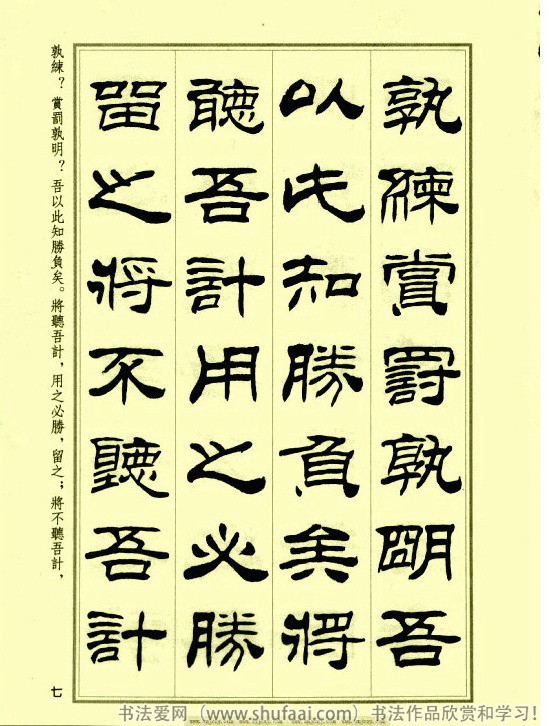 孰練賞罰孰明吾
以此知勝負矣將
聽吾計用之必勝
留之將不聽吾計
孰練？賞罰孰明？吾以此知勝負矣。將聽吾計，用之必勝，留之；將不聽吾計，
七
书法爱网（www.shufaai.com）书法作品欣赏和学习！